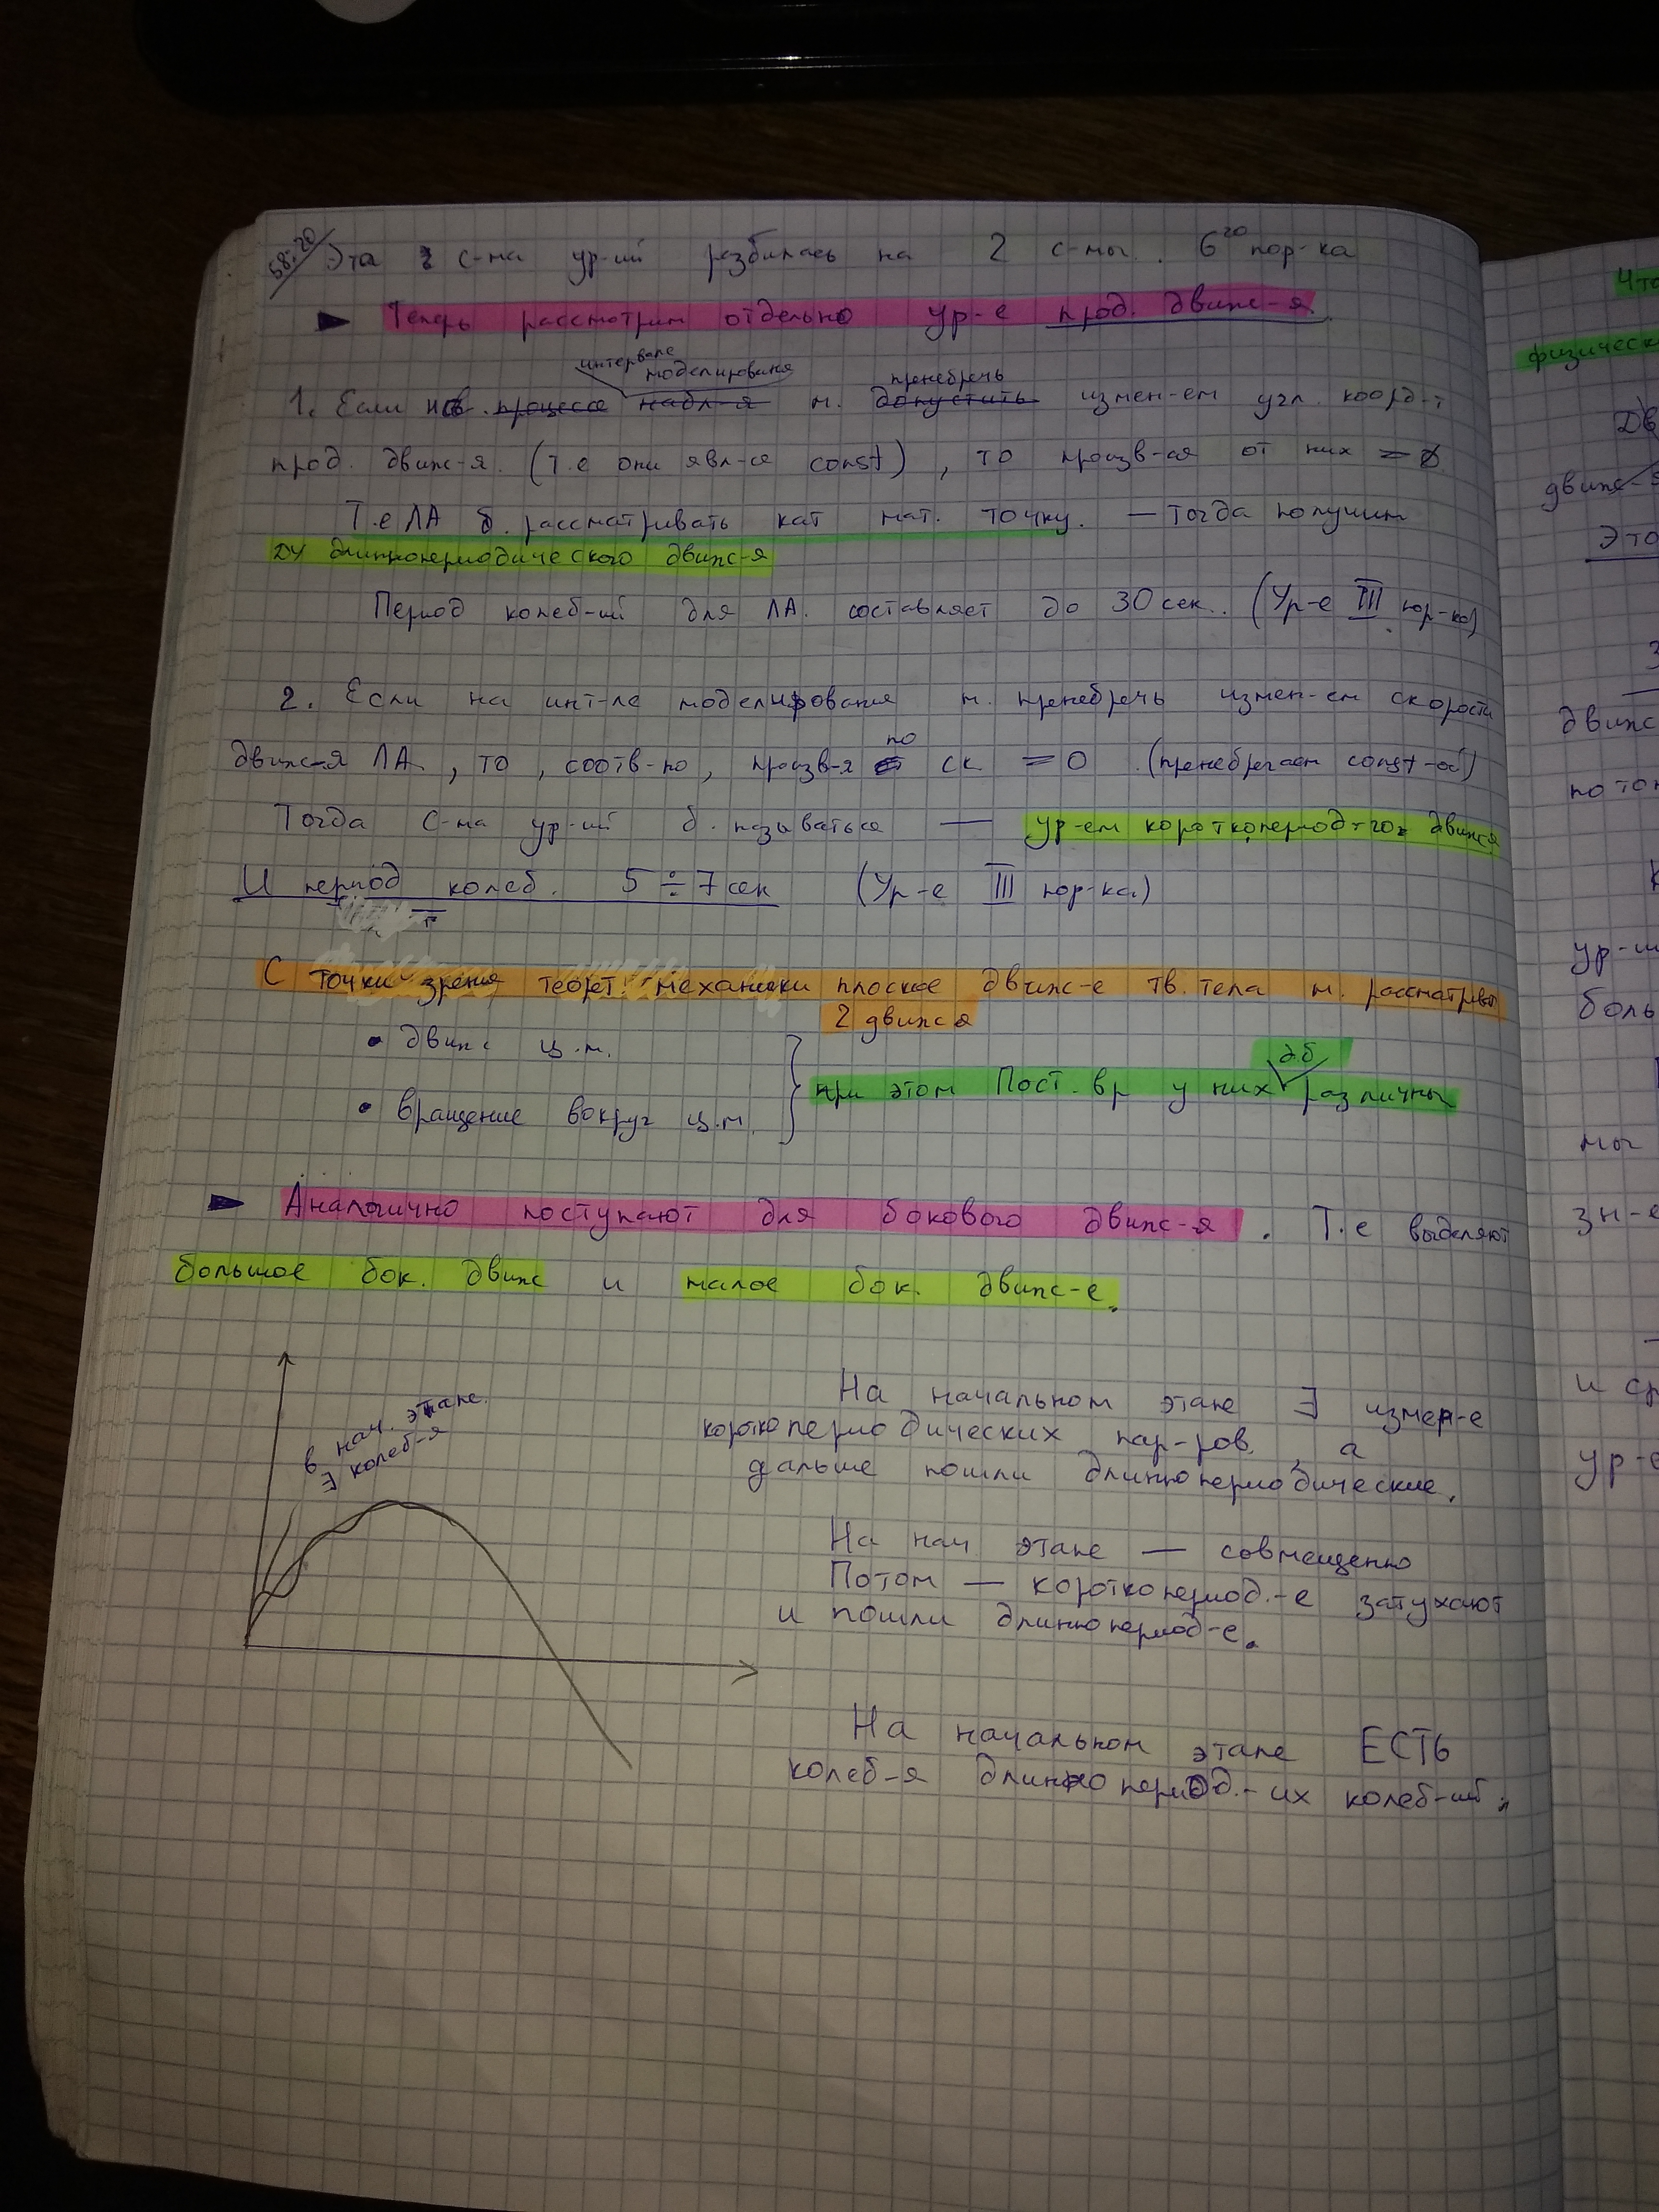 58:20 Эта с-ма ур-ий разбилась на 2 с-мы. 6го пор-ка
Теперь рассмотрим отдельно ур-е прод. движ-я.
интервале моделирования пренебречь
1. Если на процессе набл-я м. допустить измен-ем угл. коорд-т
прод. движ-я. (т.е они явл-ся const), то произв-ая от них = 0
Т.е ЛА б. рассматривать кат мат. точку. — Тогда получим
ДУ длиннопериодического движ-я
Период колеб-ий для ЛА. составляет до 30 сек.. (Ур-е III пор-ка)
2. Если на инт-ле моделирования м. пренебречь измен-ем скорости
движ-я ЛА, то, соотв-но, произв-я по ск = 0. (пренебрегаем const-ой)
Тогда с-ма ур-ий б. называться — ур-ем короткопериод-го движ-я
И период колеб. 5 ÷ 7 сек (Ур-е III пор-ка)
С точки зрения теорет. механики плоское движ-е тв. тела м. рассматрив
2 движ-я
• движ ц.м.
д.б
при этом Пост. вр у них различны
• вращение вокруг ц.м.
Аналогично поступают для бокового движ-я. Т.е выделяют
большое бок. движ и малое бок. движ-е.
в нач. этапе.
∃ колеб-я
На начальном этапе ∃ измен-е
короткопериодических пар-ров, а
дальше пошли длиннопериодические.
На нач этапе — совмещенно
Потом — короткопериод.-е затухают
и пошли длиннопериод-е.
На начальном этапе ЕСТЬ
колеб-я длиннопериод.-их колеб-ий.
Что
физическ
движ-я
Это
движ
потом
ур-ий
боль
мы
зн-е
и ср
ур-е